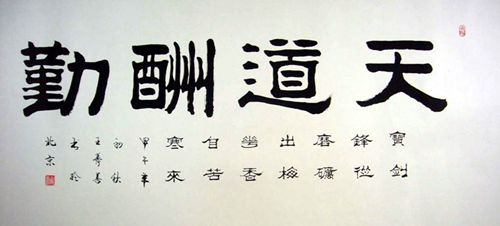 天道酬勤
寶劍
鋒從
磨礪
出梅
花香
自苦
寒來
甲午年
初秋
書於
北京